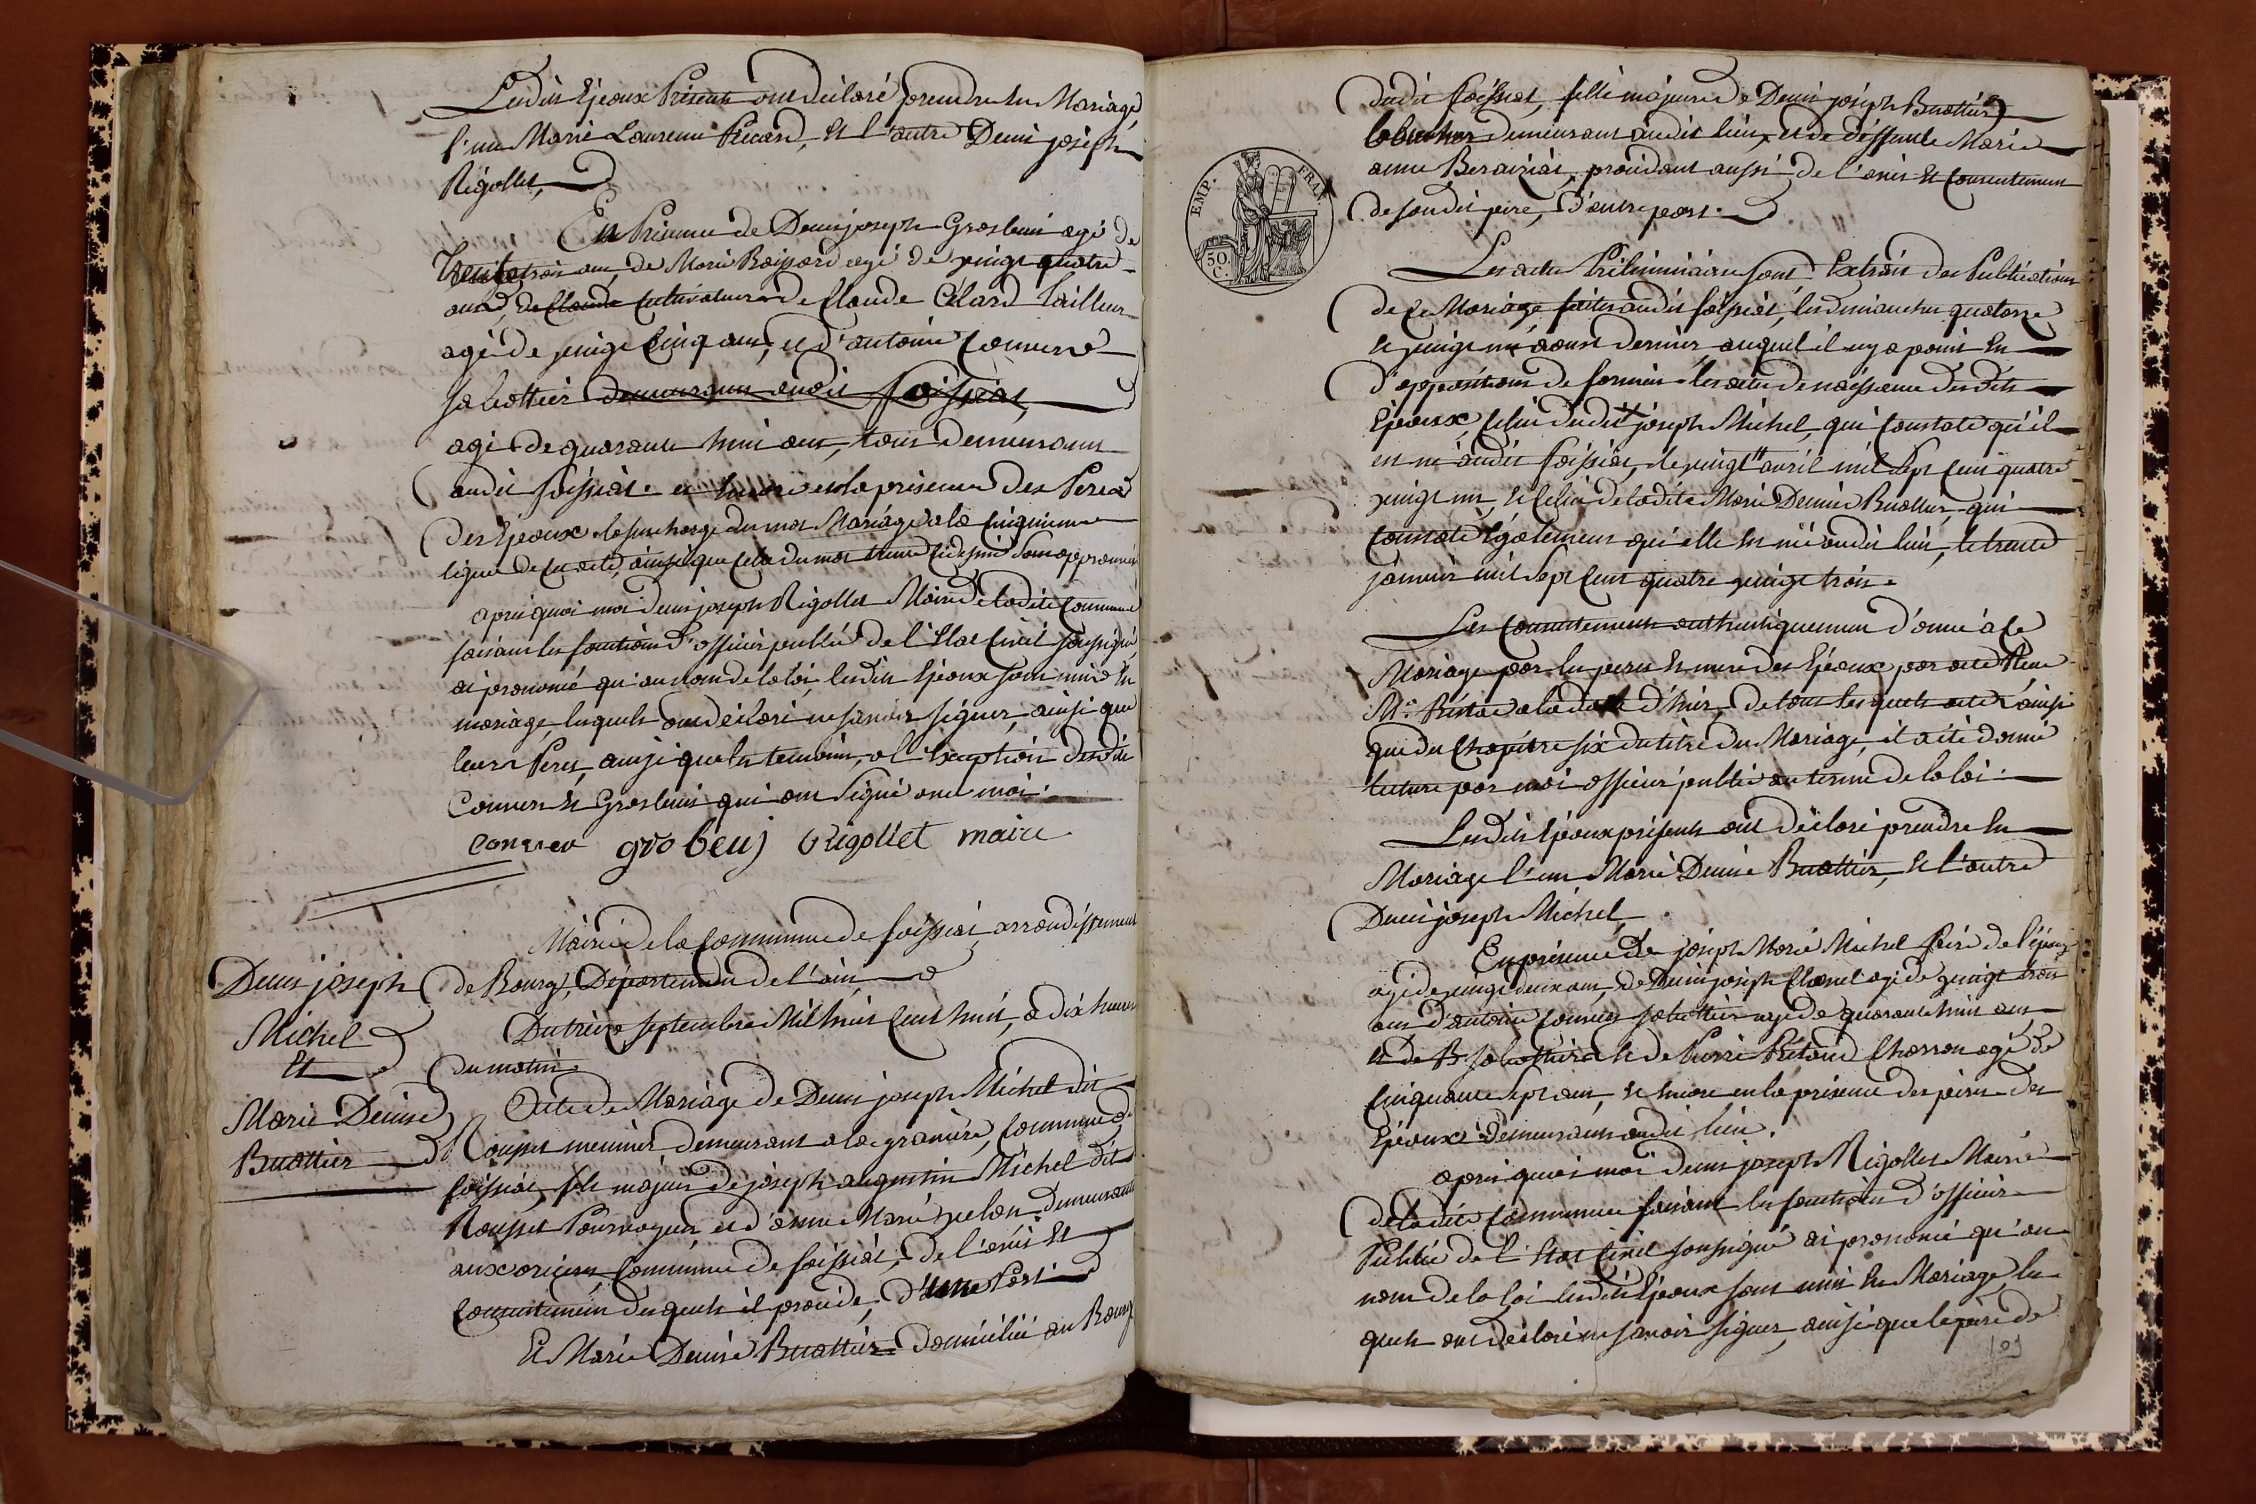 Lesdits Epoux Présents ont declaré prendre en Mariage,
l'un Marie Laurence Picard, et l'autre Denis joseph
Rigollet,
En Présence de Denis joseph Grosbuis agé de
trente trois ans, de Marie Boissard agé de vingt quatre
ans, de Claude cultivateurs de Claude Célard tailleur
agé de vingt cinq ans, et d'antoine Convers
sabottier demeurans audit foissiat,
agé de quarante huit ans, tous demeurans
audit foissiat. et encore en la présence des Peres
des Epoux. la surcharge du mot Mariage a la cinquieme
ligne de cet acte, ainsi que celle du mot trente cidessus sont approuvées
apres quoi moi denis joseph Rigollet Maire de ladite Commune
faisant les fonctions d'officier public de l'Etat Civil soussigné,
ai prononcé qu'au nom de la loi, lesdits Epoux sont unis en
mariage, lesquels ont déclaré ne savoir signer, ainsi que
leurs Peres, ainsi que les temoins, a l'exception desdits
Convers et Grosbuis qui ont signé avec moi.
Conver grobeuj Rigollet maire
Mairie de la Commune de foissiat, arrondissement
de Bourg, Département de l'ain,
Du treize septembre Mil huit Cent huit, a dix heures
du matin.
Denis joseph
Michel
Et
Marie Denise
Buattier
Acte de Mariage de Denis joseph Michel dit
Rousset meunier demeurant a la graniere, Commune de
foissiat, fils majeur de joseph augustin Michel dit
Rousset Pourvoyeur et d'anne Marie demeurants
aux oricres, Commune de foissiat, de l'avis et
Consentement desquels il procede, d'une Part.
Et Marie Denise Buattier domiciliée au Bourg
EMP. FRAN.
50. C.
dudit foissiat, fille majeure de Denis joseph Buattier
laboureur demeurant audit lieu, et de deffunte Marie
anne procédant aussi de l'avis et Consentement
de sondit pere, d'autre part.
Les actes Préliminaires sont Extrait des Publications
de ce Mariage faites audit foissiat, les dimanches quatorze
et vingt un aoust dernier auquel il n'y a point eu
d'opposition de formée. les actes de naissance desdits
Epoux Celui dudit joseph Michel, qui constate qu'il
est né audit foissiat, le vingt avril mil sept cent quatre
vingt un, et Celui de ladite Marie Denise Buattier, qui
Constate Egalement qu'elle est née audit lieu, le trente
janvier mil sept cent quatre vingt trois.
Les Consentements authentiquement donné a ce
Mariage par les peres et mere des Epoux par acte Reçu
Me a la date d'hier, de tous lesquels actes, ainsi
que du Chapitre six du titre du Mariage, il a été donné
lecture par moi officier public au terme de la loi.
Lesdits Epoux présents ont déclaré prendre en
Mariage l'un Marie Denise Buattier, et l'autre
Denis joseph Michel,
En présence de joseph Marie Michel frere de l'époux
agé de vingt deux ans, de Denis joseph agé de vingt trois
ans d'antoine Convers sabottier agé de quarante huit ans
et de B. sabottier et de Pierre Charron agé de
Cinquante sept ans, et encore en la présence des peres des
Epoux demeurants audit lieu.
apres quoi moi denis joseph Rigollet Maire
de ladite Commune faisant les fonctions d'officier
Public de l'Etat Civil soussigné ai prononcé qu'au
nom de la loi lesdits Epoux sont unis en Mariage, les
quels ont déclaré ne savoir signer, ainsi que le pere de
109